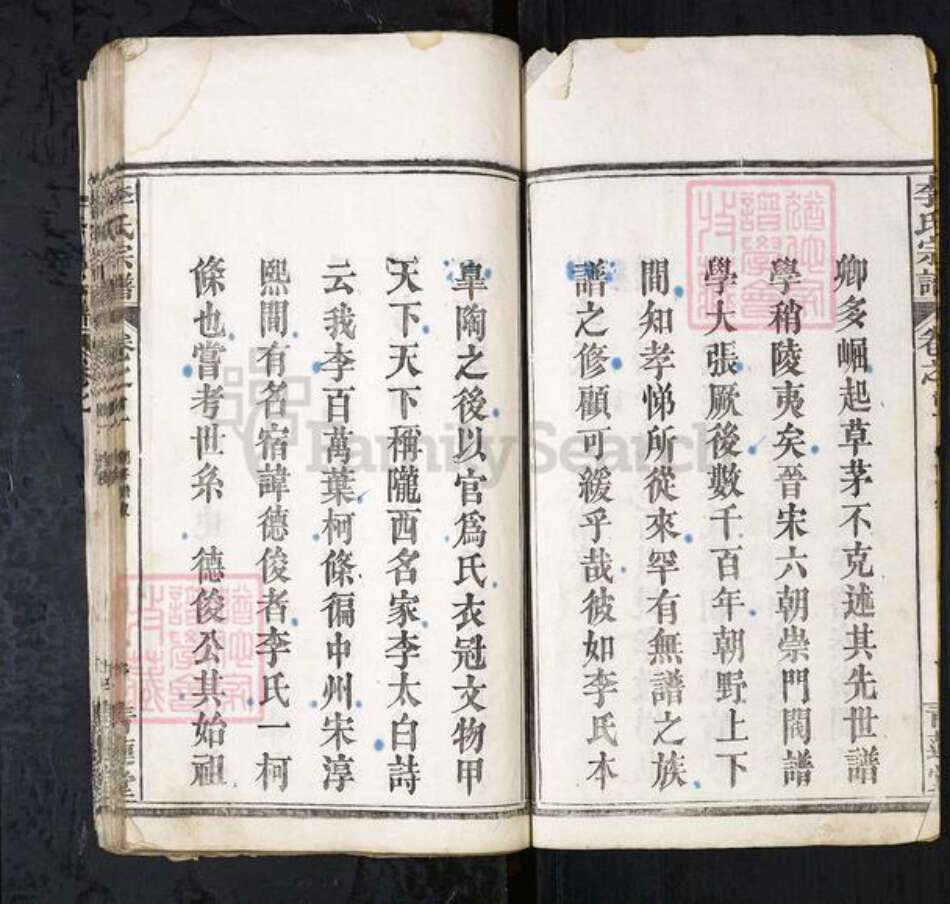 李氏宗譜
卷之
卿多崛起草茅不克述其先世譜
學稍陵夷矣晉宋六朝崇門閥譜
學大張厥後數千百年朝野上下
間知孝悌所從來罕有無譜之族
譜之修顧可緩乎哉彼如李氏本
皐陶之後以官爲氏衣冠文物甲
天下天下稱隴西名家李太白詩
云我李百萬葉柯條徧中州宋淳
熙間有名宿諱德俊者李氏一柯
條也嘗考世系 德俊公其始祖
李氏宗譜
卷之
青蓮堂
FamilySearch